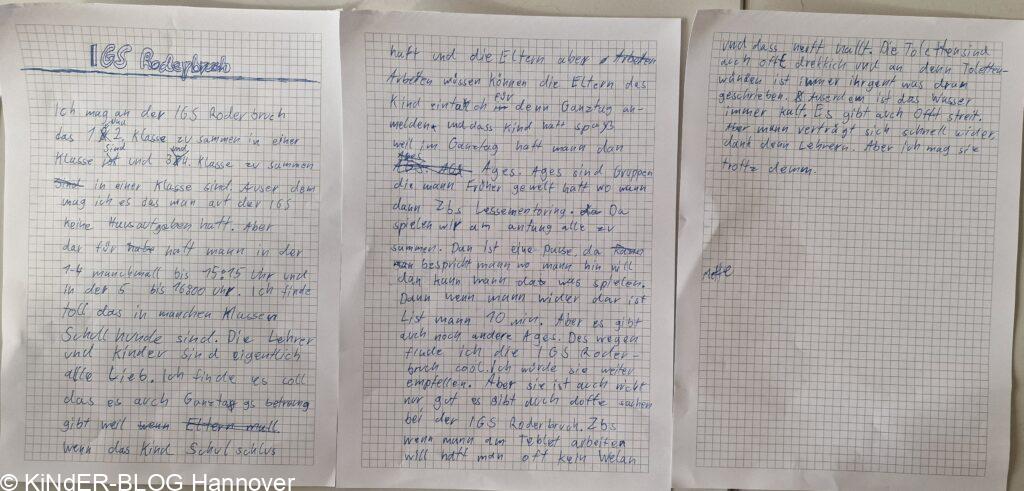 IGS Roderbruch
Ich mag an der IGS Roderbruch
das 1 und 2, Klasse zu sammen in einer
Klasse sind und 3 und 4. Klasse zu sammen
in einer Klasse sind. Auser dem
mag ich es das man auf der IGS
keine Hausaufgaben hatt. Aber
dar für hatt mann in der
1-4 manchmall bis 15:15 Uhr und
in der 5 bis 16:00 Uhr. Ich finde
toll das in manchen Klassen
Schull hunde sind. Die Lehrer
und Kinder sind eigentlich
alle Lieb. Ich finde es coll
das es auch Ganztag gs betreung
gibt weil
wenn das Kind Schul schlus
hatt und die Eltern aber
Arbeiten müssen können die Eltern das
Kind einfach für denn Ganztag an-
melden und dass Kind hatt spaß
weil im Ganztag hatt mann dan
Ages. Ages sind Gruppen
die mann Früher gewelt hatt wo mann
dann Zbs Lessementoring. Da
spielen wir am anfang alle zu
summen. Dan ist eine pause, da
bespricht mann wo mann hin will
dan kann mann was spielen.
Dann wenn mann wider dar ist
List mann 10 min. Aber es gibt
auch noch andere Ages. Des wegen
finde ich die IGS Roder-
bruch cool. Ich würde sie weiter
empfellen. Aber sie ist auch nicht
nur gut es gibt auch dofte sachen
bei der IGS Roderbruch. Zbs
wenn mann am Tablet arbeiten
will hatt man oft kein Welan
und dass nerft hallt. Die Toletten sind
auch oft drekkich und an denn Toletten-
wänden ist immer ihrgent was dran
geschrieben. Auserdem ist das Wasser
immer kalt. Es gibt auch Offt streit.
Aber mann verträgt sich schnell wider
dank denn Lehrern. Aber ich mag sie
trottz demm.
© KiNdER-BLOG Hannover